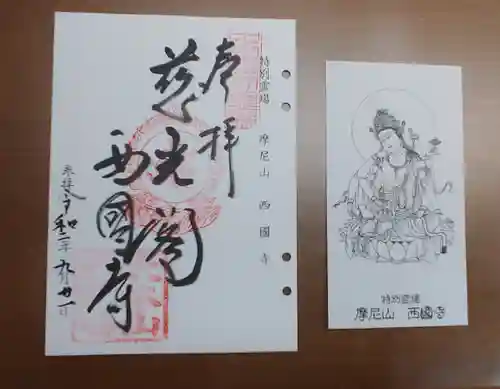 特別霊場　摩尼山　西國寺
奉拝
慈光閣
西國寺
参拝 令和二年九月廿一日
特別霊場
摩尼山　西國寺